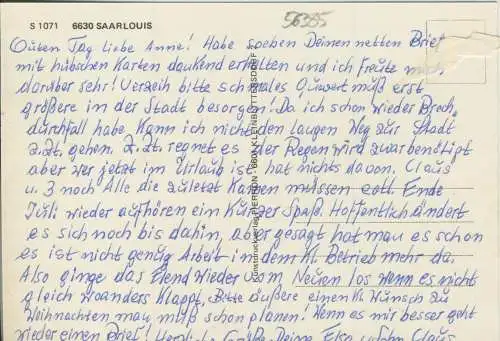 S 1071 6630 SAARLOUIS
56385
Guten Tag liebe Anne! Habe soeben Deinen netten Brief
mit hübschen Karten dankend erhalten und ich freute mich
darüber sehr! Verzeih bitte schmales Cuwert muß erst
größere in der Stadt besorgen! Da ich schon wieder Brech,
durchfall habe. Kann ich nicht den langen Weg zur Stadt
z.Zt. gehen. z.Zt. regnet es der Regen wird zwar benötigt
aber wer jetzt im Urlaub ist hat nichts davon. Claus
u. 3 noch Alle die zuletzt kamen müssen evtl. Ende
Juli wieder aufhören ein kurzer Spaß. Hoffentlich ändert
es sich noch bis dahin, aber gesagt hat man es schon
es ist nicht genug Arbeit in dem kl. Betrieb mehr da.
Also ginge das Elend wieder vom Neuen los wenn es nicht
gleich woanders klappt. Bitte äußere einen kl. Wunsch zu
Weihnachten man muß schon planen! Wenn es mir besser geht
wieder einen Brief! Herzliche Grüße Deine Elsa Claus